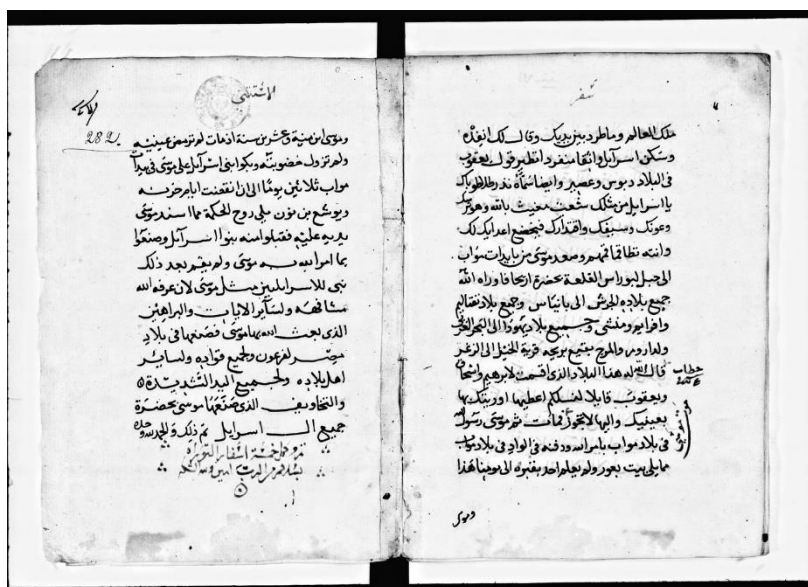 سفر
ملك العالم وما طرد بين يديك وقال لك انفده
وسكن اسرايل واثقا منفردا نظير قول يعقوب
في البلاد دبوس وعصير وايضا سماه ندر طلا طوباك
يا اسرايل من مثلك شعب مغيث بالله وهو ترسك
وعونك وسيفك واقتدارك فيخضع اعدايك لك
وانت تطا قاماتهم وصعد موسى من بايدات مواب
الى جبل نبو راس القلعة بحضرة اريحا فاوراه الله
جميع بلاده الجرش الى بانياس وجميع بلاد نفتاليم
وافرايم ومنشى وجميع بلاد يهودا الى البحر
ولداروم والمرج بقيع يريحه قرية النخيل الى الزغر
قال الله له هذا البلاد الذي اقسمت لابرهيم واسحاق
ويعقوب قايلا لنسلكم اعطيها اوريتك بها
بعينيك واليها لا تجوز فمات ثم موسى رسول الله
في بلاد مواب بامر الله ودفنه في الواد في بلاد مواب
مما يلي بيت بعور ولم يعلم احد بقبره الى يومنا هذا
وموسى
282
وموسى ابن مية وعشرين سنة اذ مات لم ترمض عينيه
ولم تزول خضوبته وبكوا بني اسرايل على موسى في بيدات
مواب ثلاثين يوما الى ان انقضت ايام حزنه
ويوشع بن نون ملي روح الحكمة مما اسند موسى
يديه عليه فقبلوا منه بنوا اسرايل وصنعوا
بما امر الله به موسى ولم يقم بعد ذلك
نبي للاسرايلين مثل موسى لان عرفه الله
مشافهة ولساير الايات والبراهين
الذي بعث الله بها موسى فصنعها في بلاد
مصر لفرعون ولجميع قواده ولساير
اهل بلاده ولجميع اليد الشديدة
والتخاويف الذي صنعها موسى بحضرة
جميع ال اسرايل تم ذلك والحمد لله وحده
تم وكمل خمسة اسفار التوراة
بسلام من الرب امين